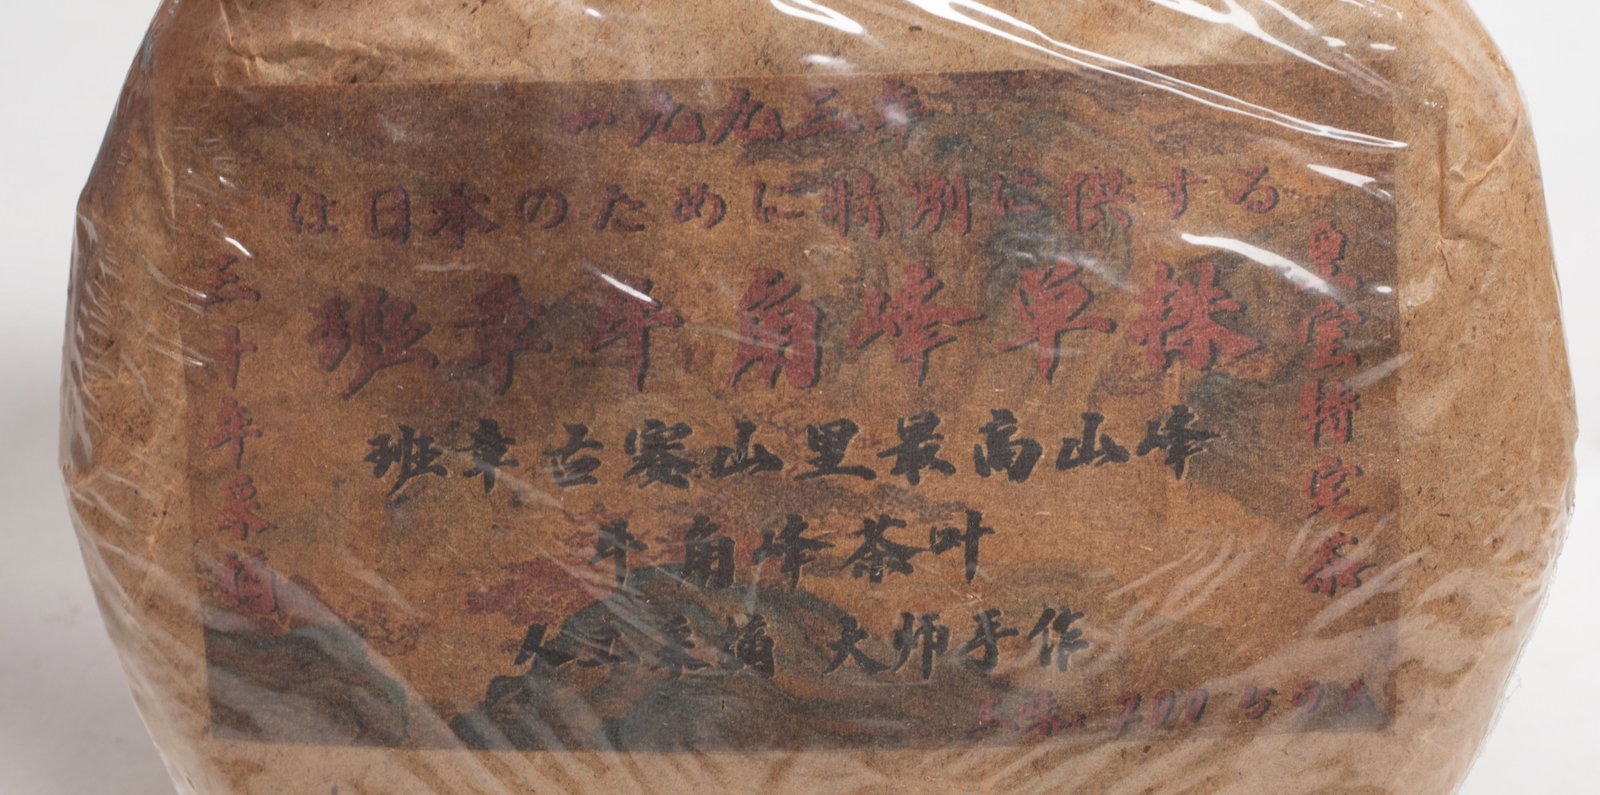 一九九三年
は日本のために特別に供する
班章牛角峰单株
班章古寨山里最高山峰
牛角峰茶叶
人工采摘 大师手作
皇室特定茶
三十年